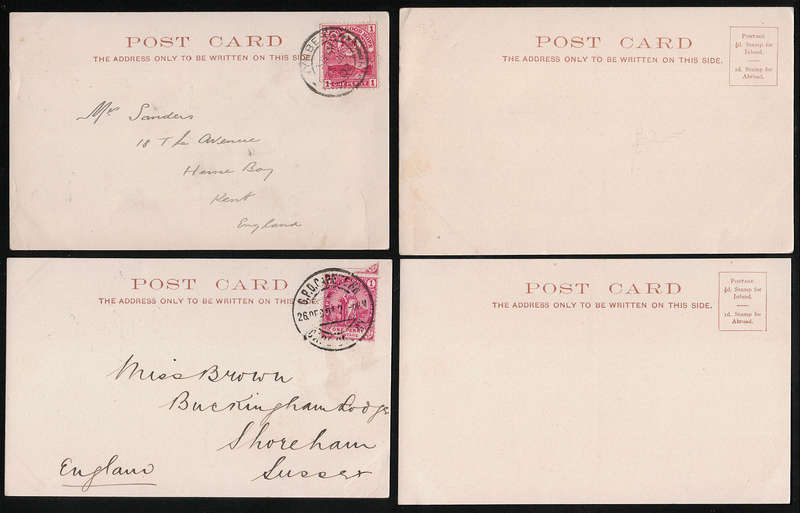 POST CARD
THE ADDRESS ONLY TO BE WRITTEN ON THIS SIDE.
1 1
Mr Sanders
18 The Avenue
Herne Bay
Kent
England
POST CARD
THE ADDRESS ONLY TO BE WRITTEN ON THIS SIDE.
Postage
½d. Stamp for
Inland.
1d. Stamp for
Abroad.
POST CARD
THE ADDRESS ONLY TO BE WRITTEN ON THIS SIDE.
G.P.O. CAPE
26 DE
ONE PENNY
Miss Brown
Buckingham Lodge
Shoreham
Sussex
England
POST CARD
THE ADDRESS ONLY TO BE WRITTEN ON THIS SIDE.
Postage
½d. Stamp for
Inland.
1d. Stamp for
Abroad.